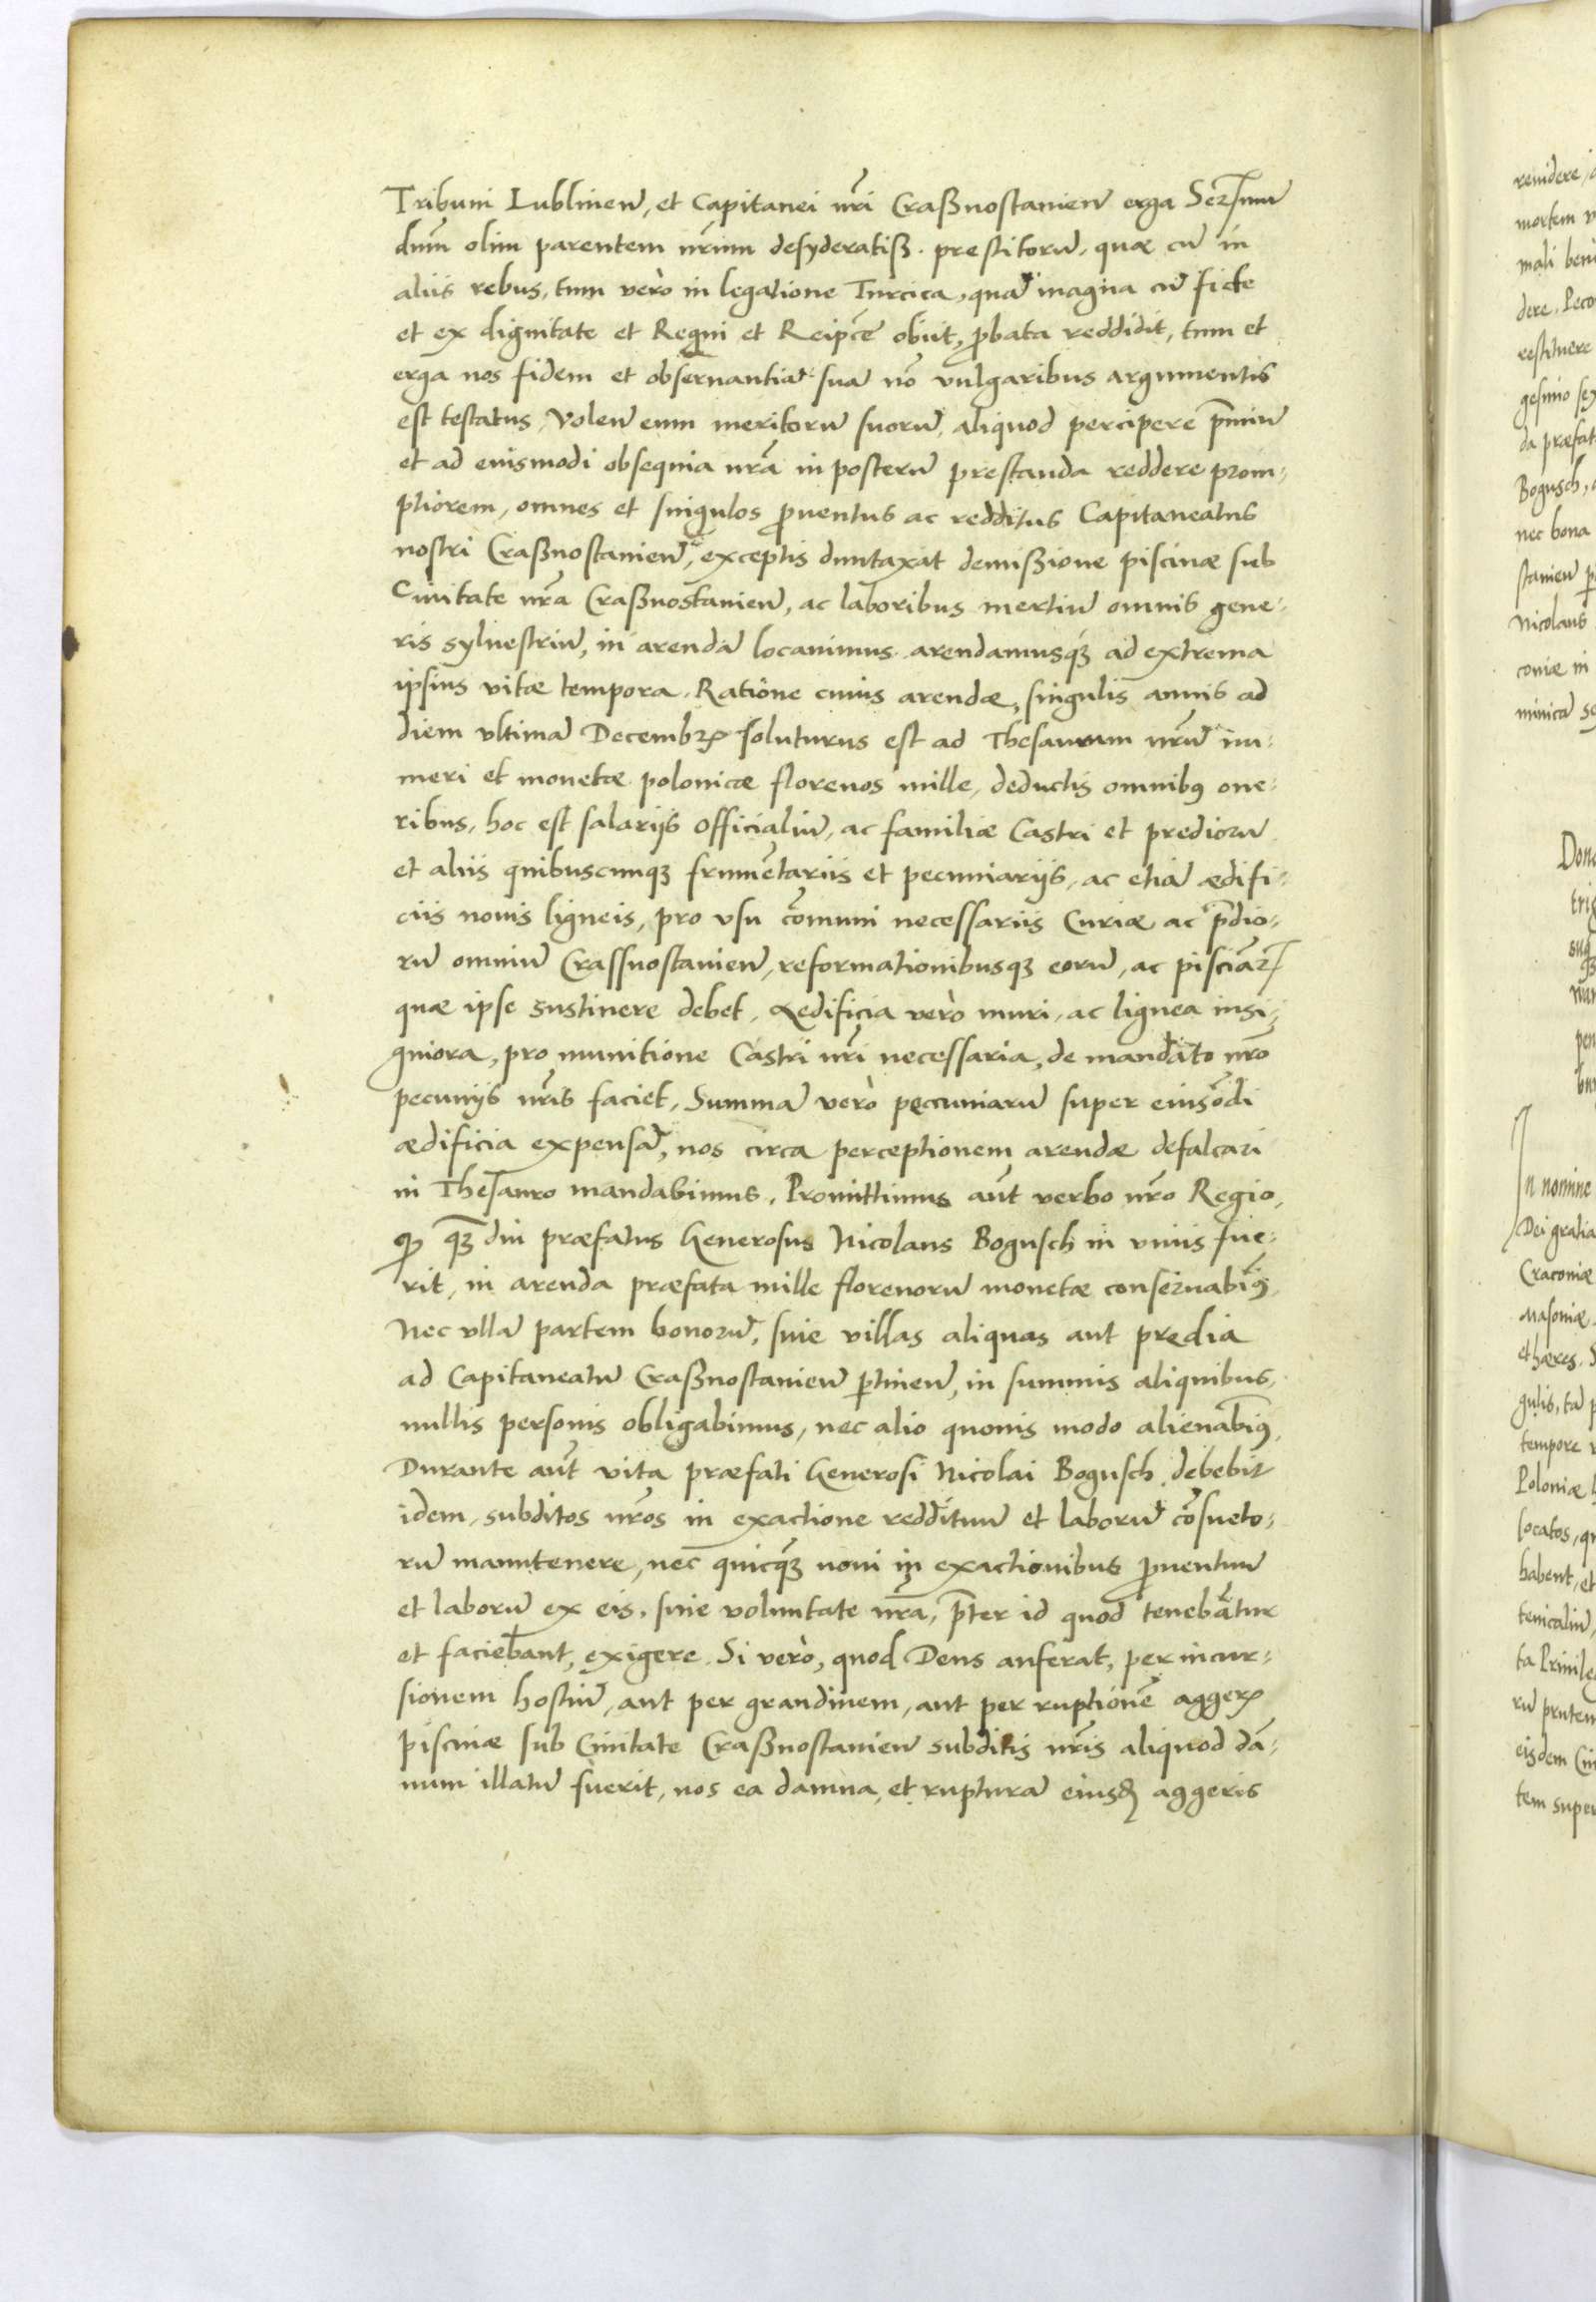 Tribuni Lublinen̄, et Capitanei nr̄i Craßnostanien̄ erga Ser^mum
dnm̄ olim parentem nr̄um desyderatiß. prestitorū, quæ cū in
aliis rebus, tum verò in legatione Turcica, quā magna cū fide
et ex dignitate et Regni et Reipc̄e obiit, ꝓbata reddidit, tum et
erga nos fidem et obseruantiā suā nō vulgaribus argumentis
est testatus, Volen̄ eum meritorū suorū, aliquod percipere p̄miū
et ad eiusmodi obsequia nr̄a in posterū prestanda reddere prom,
ptiorem, omnes et singulos ꝓuentus ac redditus Capitaneatus
nostri Craßnostanien̄, exceptis duntaxat demißione piscinæ sub
Ciuitate nr̄a Craßnostanien̄, ac laboribus mertiū omnis gene,
ris syluestriū, in arendā locauimus arendamusqꝫ ad extrema
ipsius vitæ tempora. Ratione cuius arendæ, singulis annis ad
diem vltimā Decembrꝭ soluturus est ad Thesaurum nr̄ū nu,
meri et monetæ polonicæ florenos mille, deductis omnibꝰ one,
ribus, hoc est salarijs officialiū, ac familiæ Castri et prediorū
et aliis quibuscunqꝫ frumētariis et pecuniarijs, ac etiā ædifi,
ciis nouis ligneis, pro vsu cōmuni necessariis Curiæ ac p̄dio,
rū omniū Crassnostanien̄, reformationibusqꝫ eorū, ac pisciāꝝ
quæ ipse sustinere debet, Ædificia verò muri, ac lignea insi,
gniora, pro munitione Castri nr̄i necessaria, de mandato nr̄o
pecunijs nr̄is faciet, Summā verò pecuniarū super eiusōdi
ædificia expensā, nos circa perceptionem arendæ defalcari
in Thesauro mandabimus. Promittimus aūt verbo nr̄o Regio,
ꝙ qꝫ̄ diu præfatus Generosus Nicolaus Bogusch in viuis fue,
rit, in arenda præfata mille florenorū monetæ conseruabimꝰ,
Nec vllā partem bonorū, siue villas aliquas aut prędia
ad Capitaneatū Craßnostanien̄ ꝑtinen̄, in summis aliquibus,
nullis personis obligabimus, nec alio quouis modo alienabimꝰ,
Durante aūt vita præfati Generosi Nicolai Bogusch debebit
idem, subditos nr̄os in exactione reddituū et laborū cōsueto,
rū manutenere, nec quicqꝫ̄ noui in exactionibus ꝓuentuū
et laborū ex eis, sine voluntate nr̄a, p̄ter id quod tenebātur
et faciebant, exigere. Si verò, quod Deus auferat, per incur,
sionem hostiū, aut per grandinem, aut per ruptionē aggerꝭ
piscinæ sub Ciuitate Craßnostanien̄ subditis nr̄is aliquod dā,
num illatū fuerit, nos ea damna, et rupturā eiusđ aggeris
reuidere,
mortem
mali
dere.
restituere
gesimo
da præfat
Bogusch,
nec bona
stanien̄
Nicolaus
coniæ in
minica
In nomine
Dei gratia
Cracouiæ
Masouiæ
et hæres.
gulis, tā
tempore
Poloniæ
locatos,
habent, et
tenicaliū,
ta Priuile
rū pruten
eisdem
tem super